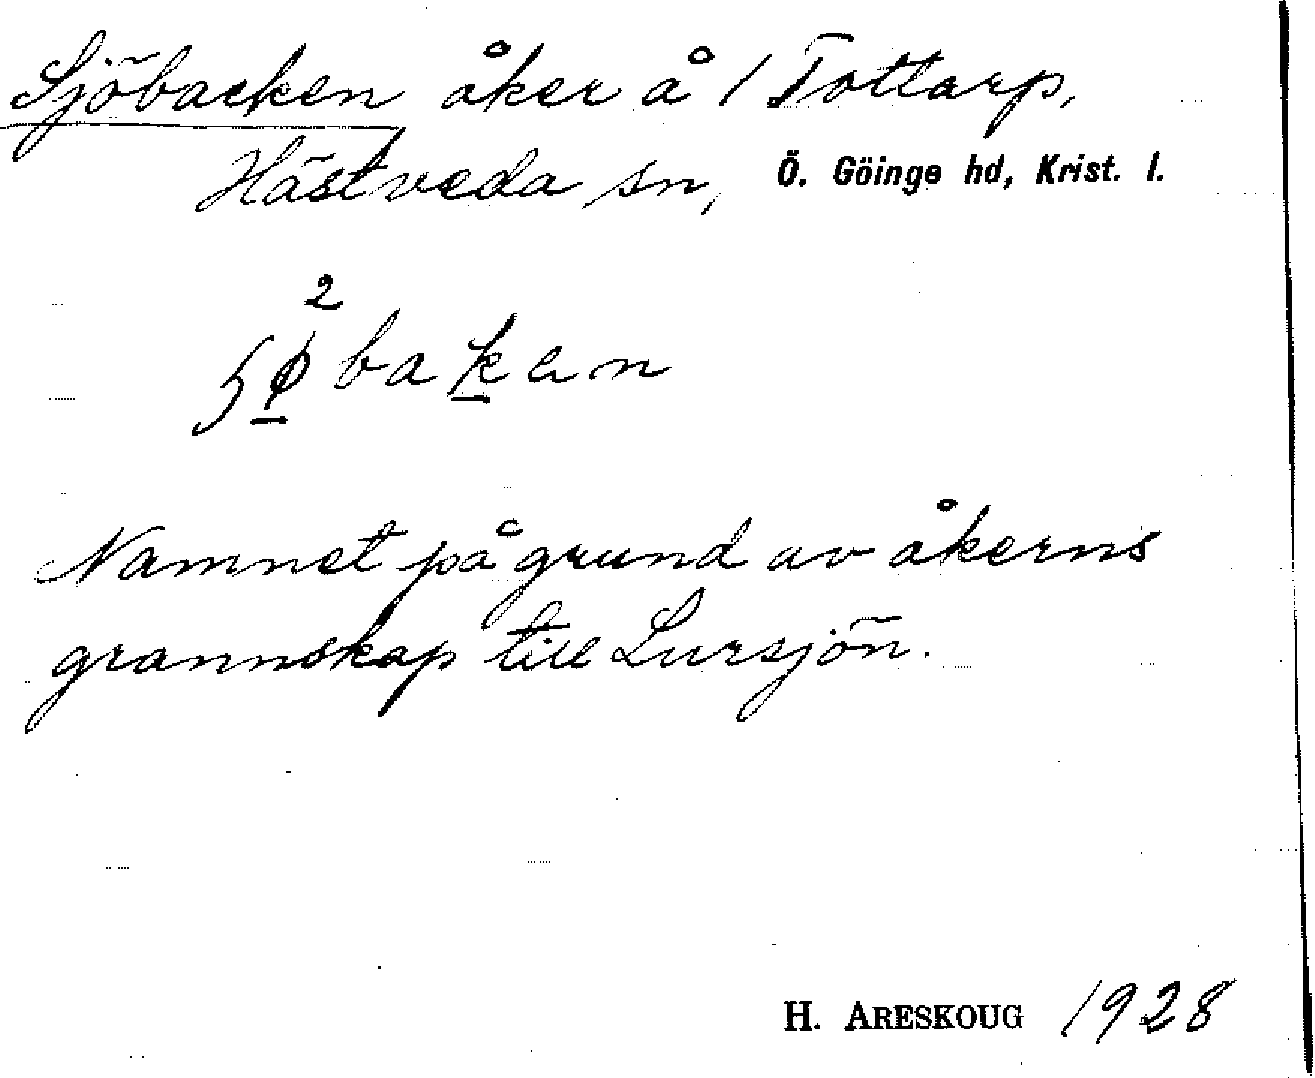 Sjöbacken åker å 1 Tottarp,
Hästveda sn, Ö. Göinge hd, Krist. l.
2
ʃø̱baḵən
Namnet på grund av åkerns
grannskap till Lursjön.
H. ARESKOUG 1928